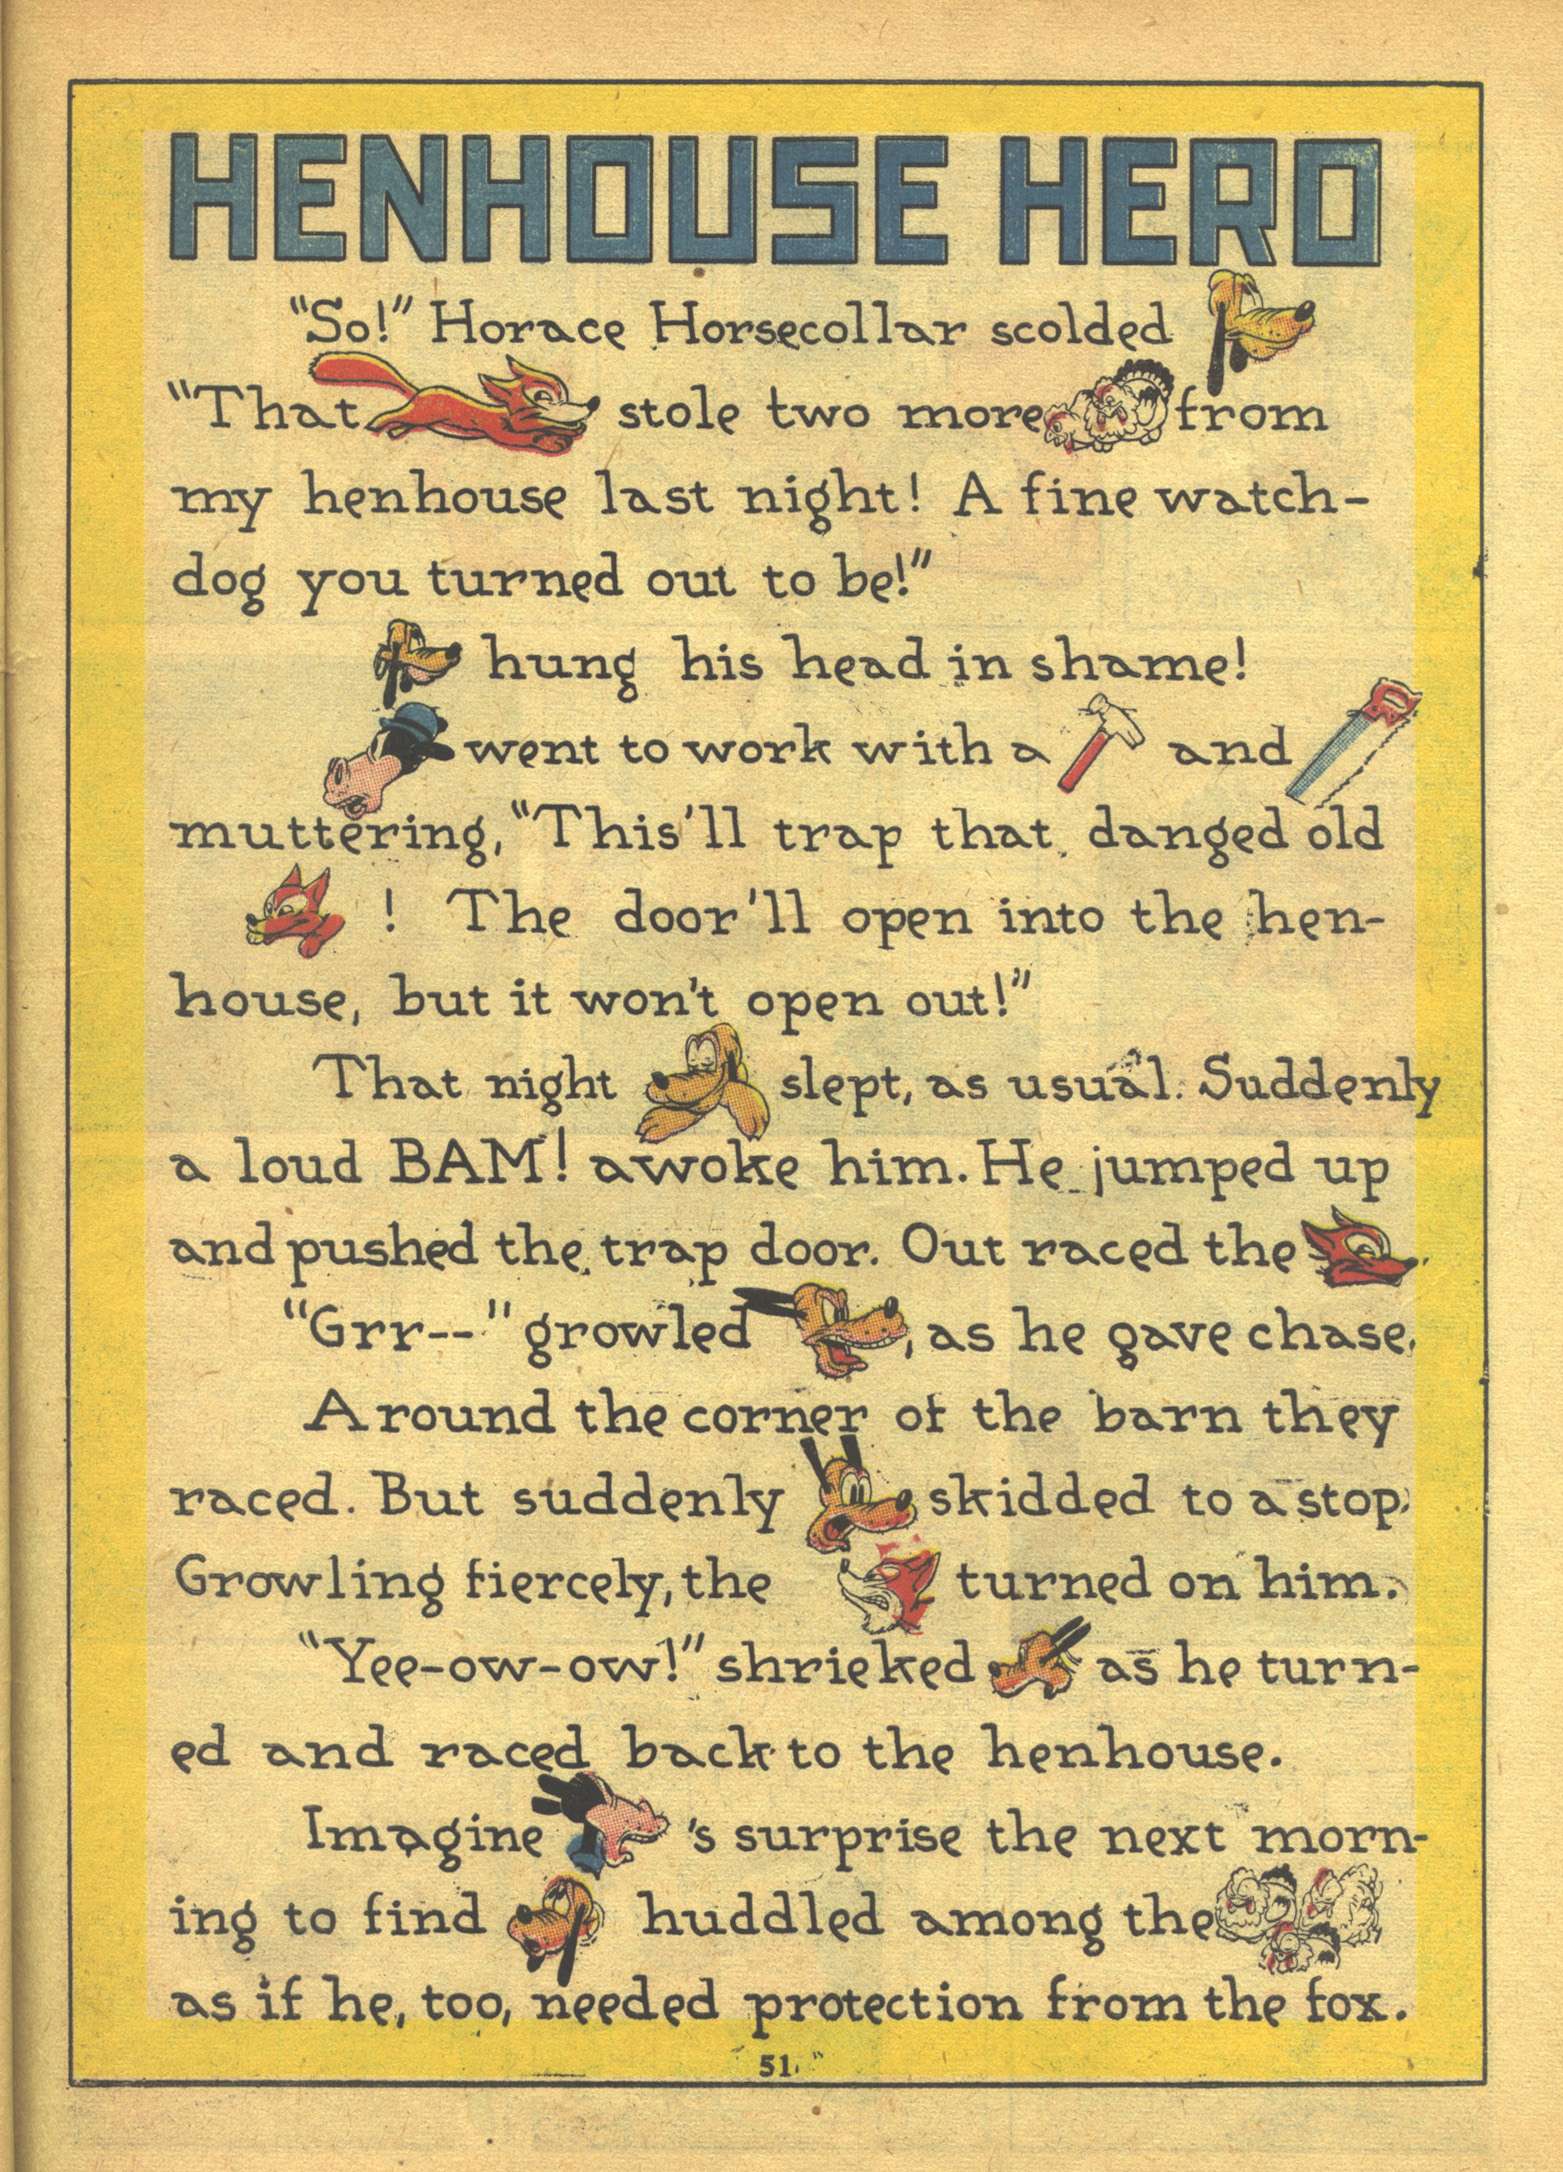 HENHOUSE HERO
"So!" Horace Horsecollar scolded
"That stole two more from
my henhouse last night! A fine watch-
dog you turned out to be!"
hung his head in shame!
went to work with a and
muttering, "This'll trap that danged old
! The door'll open into the hen-
house, but it won't open out!"
That night slept, as usual. Suddenly
a loud BAM! awoke him. He jumped up
and pushed the trap door. Out raced the .
"Grr--" growled , as he gave chase.
Around the corner of the barn they
raced. But suddenly skidded to a stop.
Growling fiercely, the turned on him.
"Yee-ow-ow!" shrieked as he turn-
ed and raced back to the henhouse.
Imagine 's surprise the next morn-
ing to find huddled among the
as if he, too, needed protection from the fox.
51